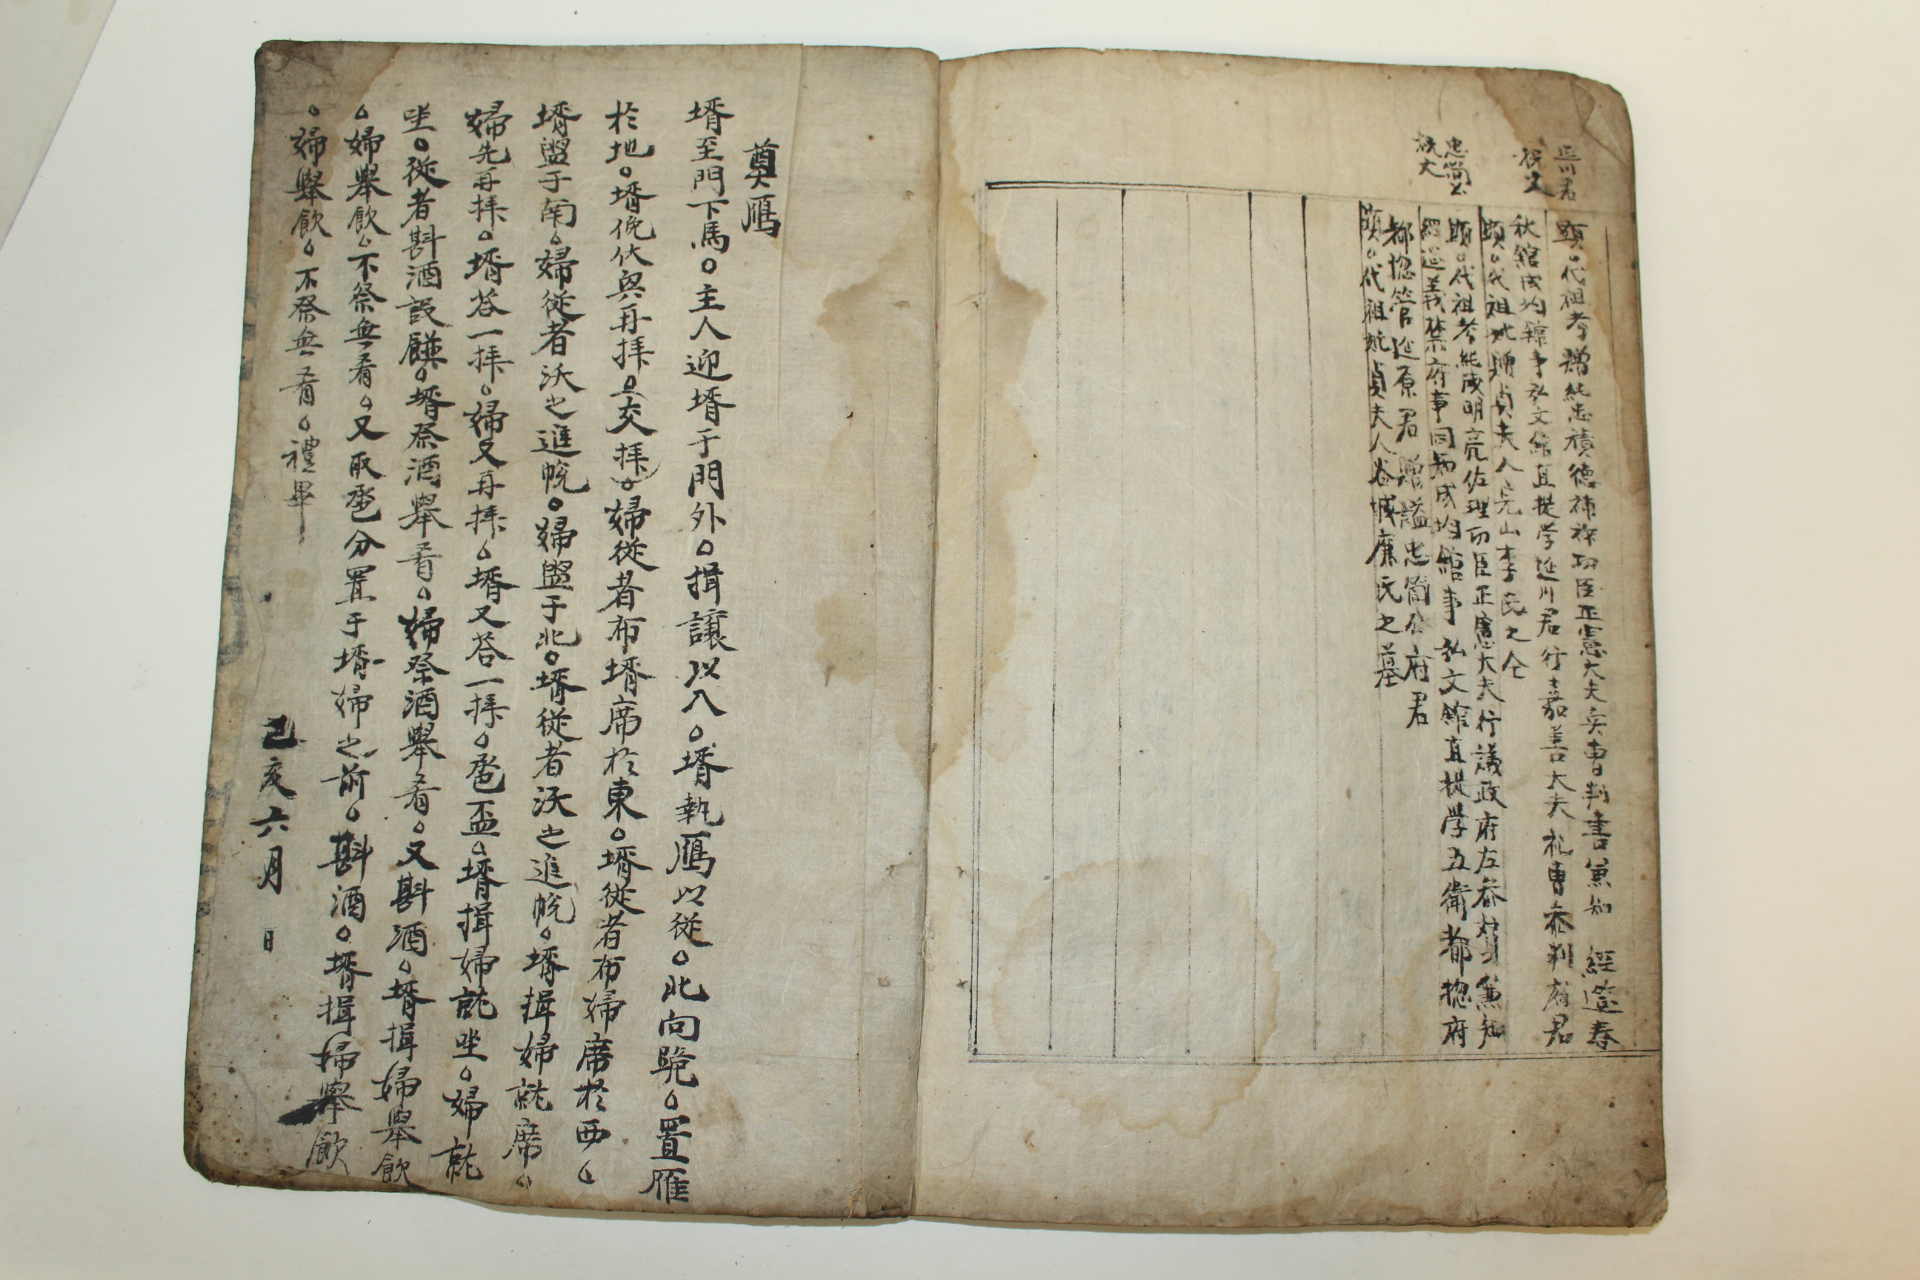 延川君
祝文
顯。代祖考 贈純忠積德補祚功臣正憲大夫兵曹判書兼知 經筵春
秋館成均館事弘文館直提学延川君行嘉善大夫礼曹叅判府君
顯。代祖妣贈貞夫人光山李氏之仝
忠簡公
祝文
顯。代祖考純誠明亮佐理功臣正憲大夫行議政府左叅賛兼知
經筵義禁府事同知成均館事弘文館直提学五衛都摠府
都摠管延原君 贈謚忠簡公府君
顯。代祖妣貞夫人谷城廉氏之墓
奠鴈
壻至門下馬。主人迎壻于門外。揖讓以入。壻執鴈以從。北向跪。置雁
於地。壻俛伏興再拜。交拜。婦從者布壻席於東。壻從者布婦席於西。
壻盥于南。婦從者沃之進帨。婦盥于北。壻從者沃之進帨。壻揖婦就席。
婦先再拜。壻荅一拜。婦又再拜。壻又荅一拜。卺盃。壻揖婦就坐。婦就
坐。從者斟酒設饌。壻祭酒舉肴。婦祭酒舉肴。又斟酒。壻揖婦舉飮
。婦舉飮。不祭無肴。又取卺分置于壻婦之前。斟酒。壻揖婦舉飮
。婦舉飮。不祭無肴。禮畢
己亥六月 日